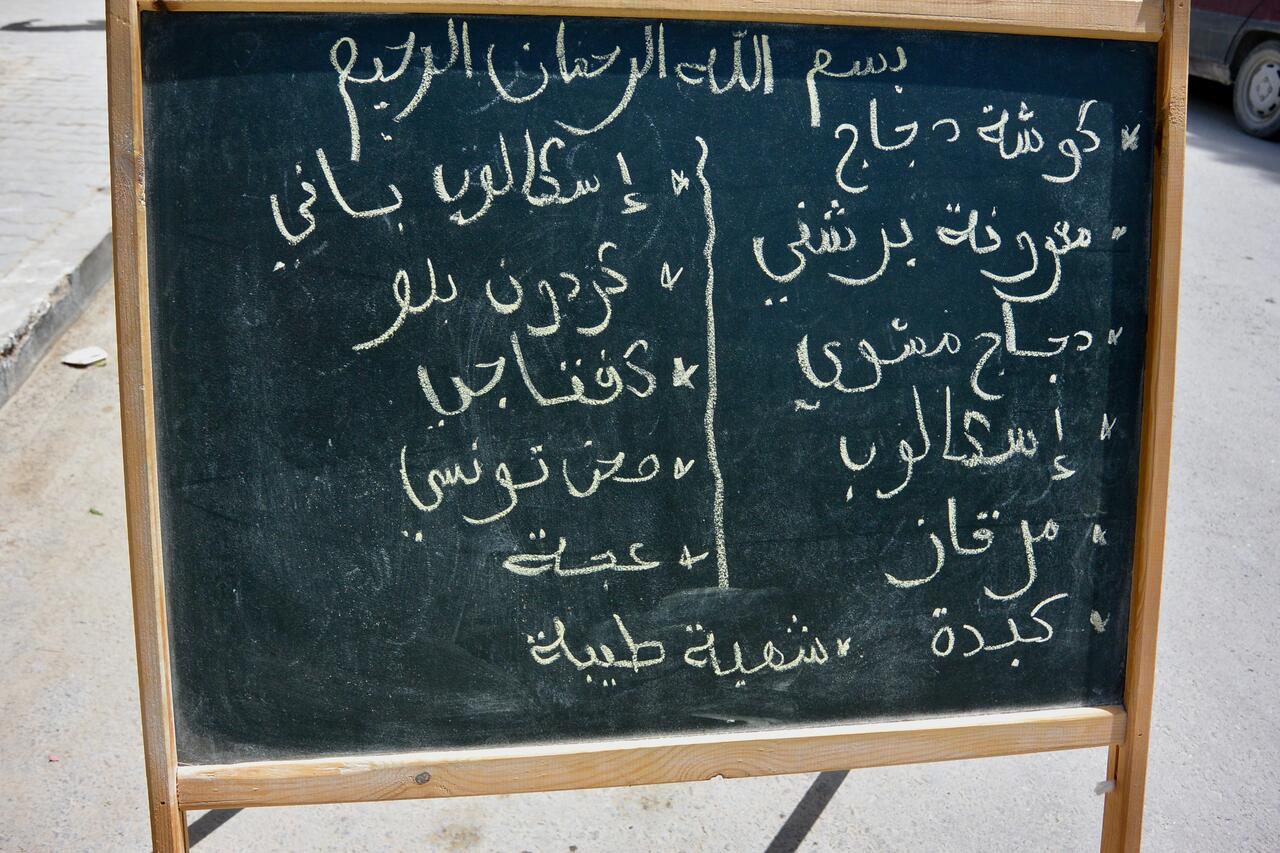 بسم الله الرحمان الرحيم
* كوشة دجاج
* مقرونة برشني
* دجاج مشوي
* إسكالوب
* مرقاز
* كبدة
* إسكالوب باني
* كردون بلو
* كفتاجي
* صحن تونسي
* عجة
* شهية طيبة